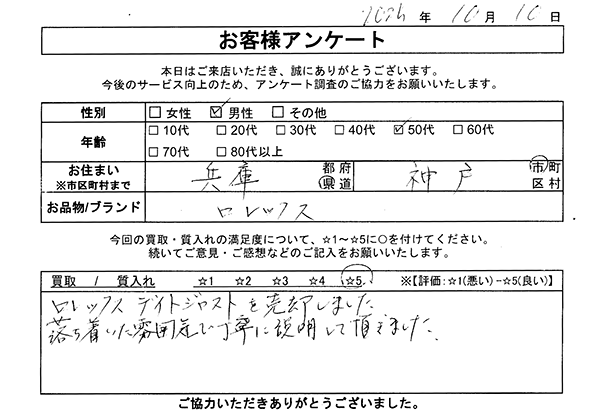 2024 年 10 月 10 日
お客様アンケート
本日はご来店いただき、誠にありがとうございます。
今後のサービス向上のため、アンケート調査のご協力をお願いいたします。
性別 □ 女性 ☑ 男性 □ その他
年齢 □ 10代 □ 20代 □ 30代 □ 40代 ☑ 50代 □ 60代
□ 70代 □ 80代以上
お住まい 兵庫 都 府 神戸 市 町
※市区町村まで 県 道 区 村
お品物/ブランド ロレックス
今回の買取・質入れの満足度について、☆1～☆5に○を付けてください。
続いてご意見・ご感想などのご記入をお願いいたします。
買取 / 質入れ ☆1 ☆2 ☆3 ☆4 ☆5 ※【評価:☆1(悪い)-☆5(良い)】
ロレックス デイトジャストを売却しました
落ち着いた雰囲気で丁寧に説明して頂きました。
ご協力いただきありがとうございました。